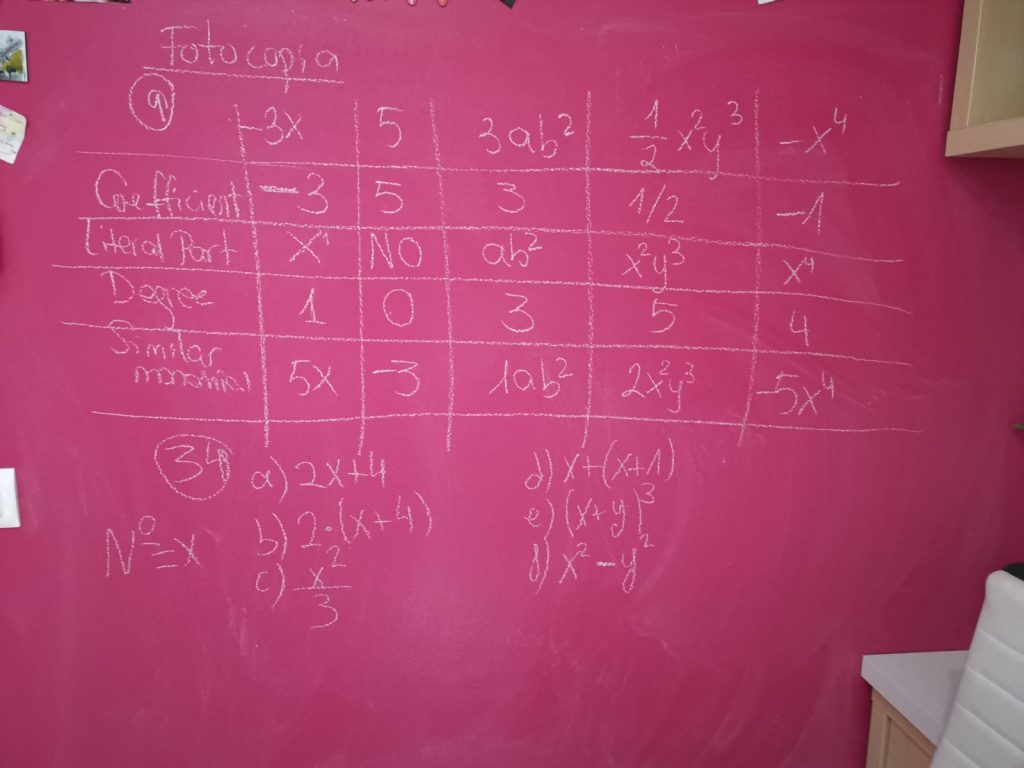 Fotocopia
9 -3x 5 3ab² 1/2 x²y³ -x⁴
Coefficient -3 5 3 1/2 -1
Literal Part x¹ NO ab² x²y³ x⁴
Degree 1 0 3 5 4
Similar
monomial 5x -3 1ab² 2x²y³ -5x⁴
34 a) 2x+4 d) x+(x+1)
Nº=x b) 2·(x+4) e) (x+y)³
c) x²/3 f) x²-y²